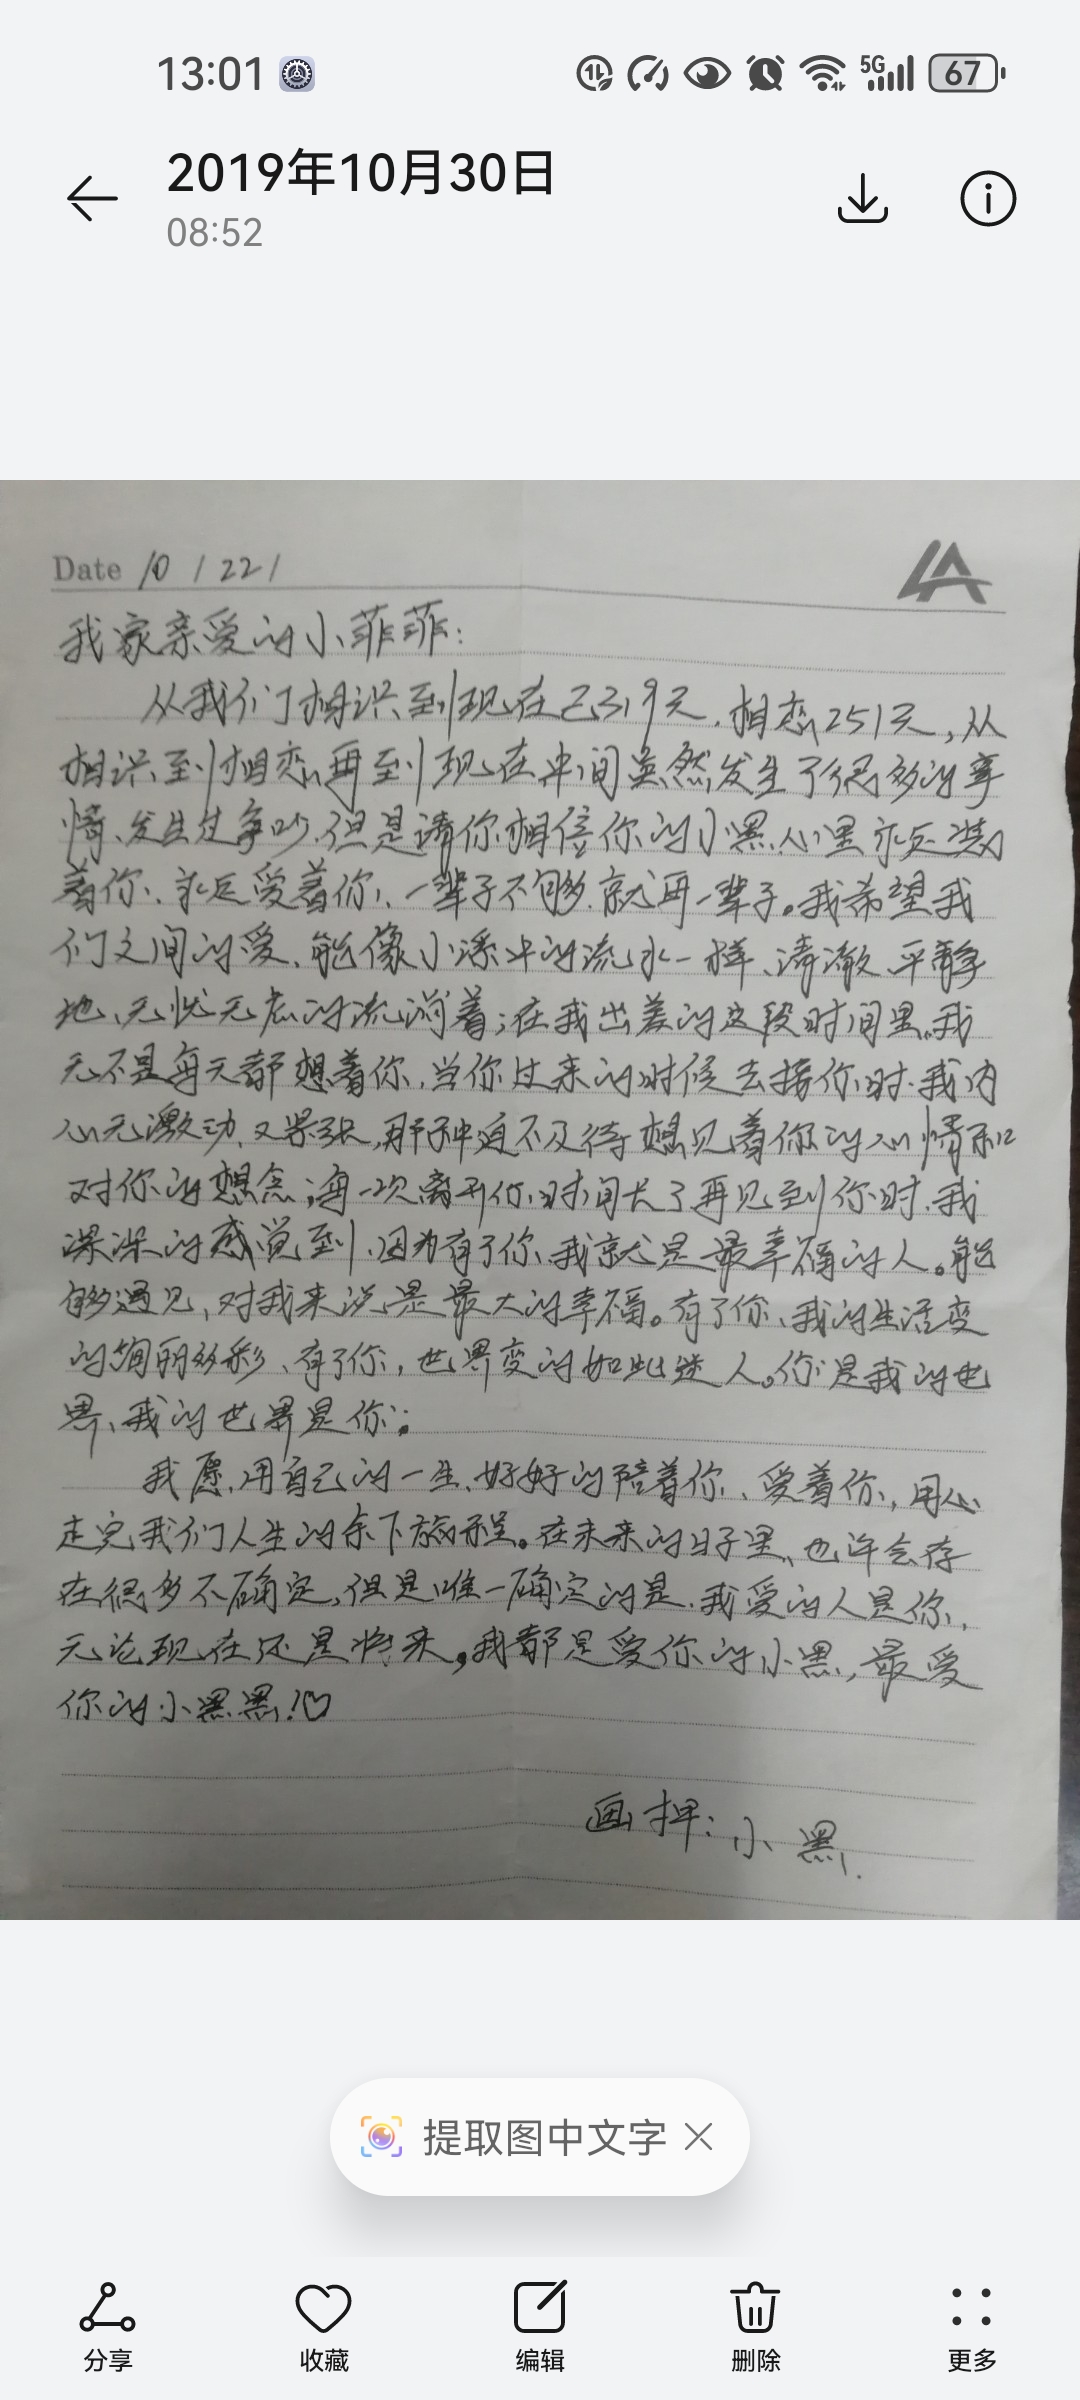 13:01
5G
67
2019年10月30日
08:52
Date 10 / 22 /
我家亲爱的小菲菲：
从我们相识到现在已319天，相恋251天，从
相识到相恋再到现在中间虽然发生了很多的事
情、发生过争吵，但是请你相信你的小黑心里永远装
着你、永远爱着你，一辈子不够，就再一辈子。我希望我
们之间的爱、能像小溪中的流水一样、清澈、平静
地、无忧无虑的流淌着；在我出差的这段时间里，我
无不是每天都想着你，当你过来的时候去接你时，我内
心无激动，又紧张，那种迫不及待想见着你的心情和
对你的想念；每一次离开你，时间长了再见到你时，我
深深的感觉到，因为有了你，我就是最幸福的人。能
够遇见，对我来说是最大的幸福。有了你、我的生活变
的绚丽多彩、有了你，世界变的如此迷人。你是我的世
界、我的世界是你；
我愿用自己的一生、好好的陪着你、爱着你，用心
走完我们人生的余下旅程。在未来的日子里、也许会存
在很多不确定，但是唯一确定的是，我爱的人是你，
无论现在还是将来，我都是爱你的小黑，最爱
你的小黑黑！♡
画押：小黑
提取图中文字
分享 收藏 编辑 删除 更多